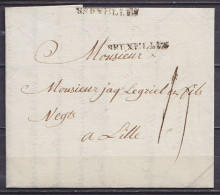 BRUXELLES
BRUXELLES
Monsieur
Monsieur jaq Legriel et fils
Negts
a Lille